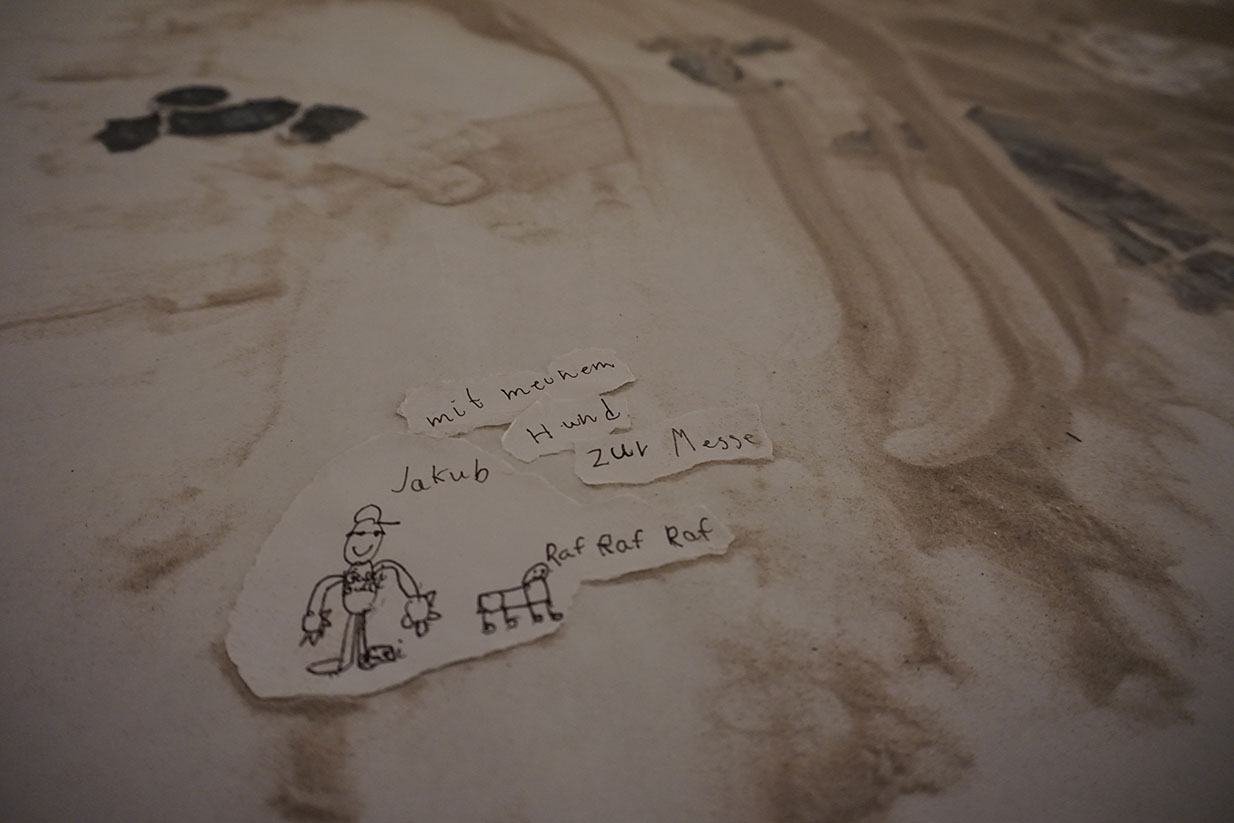 mit meinem
Hund
zur Messe
Jakub
Raf Raf Raf